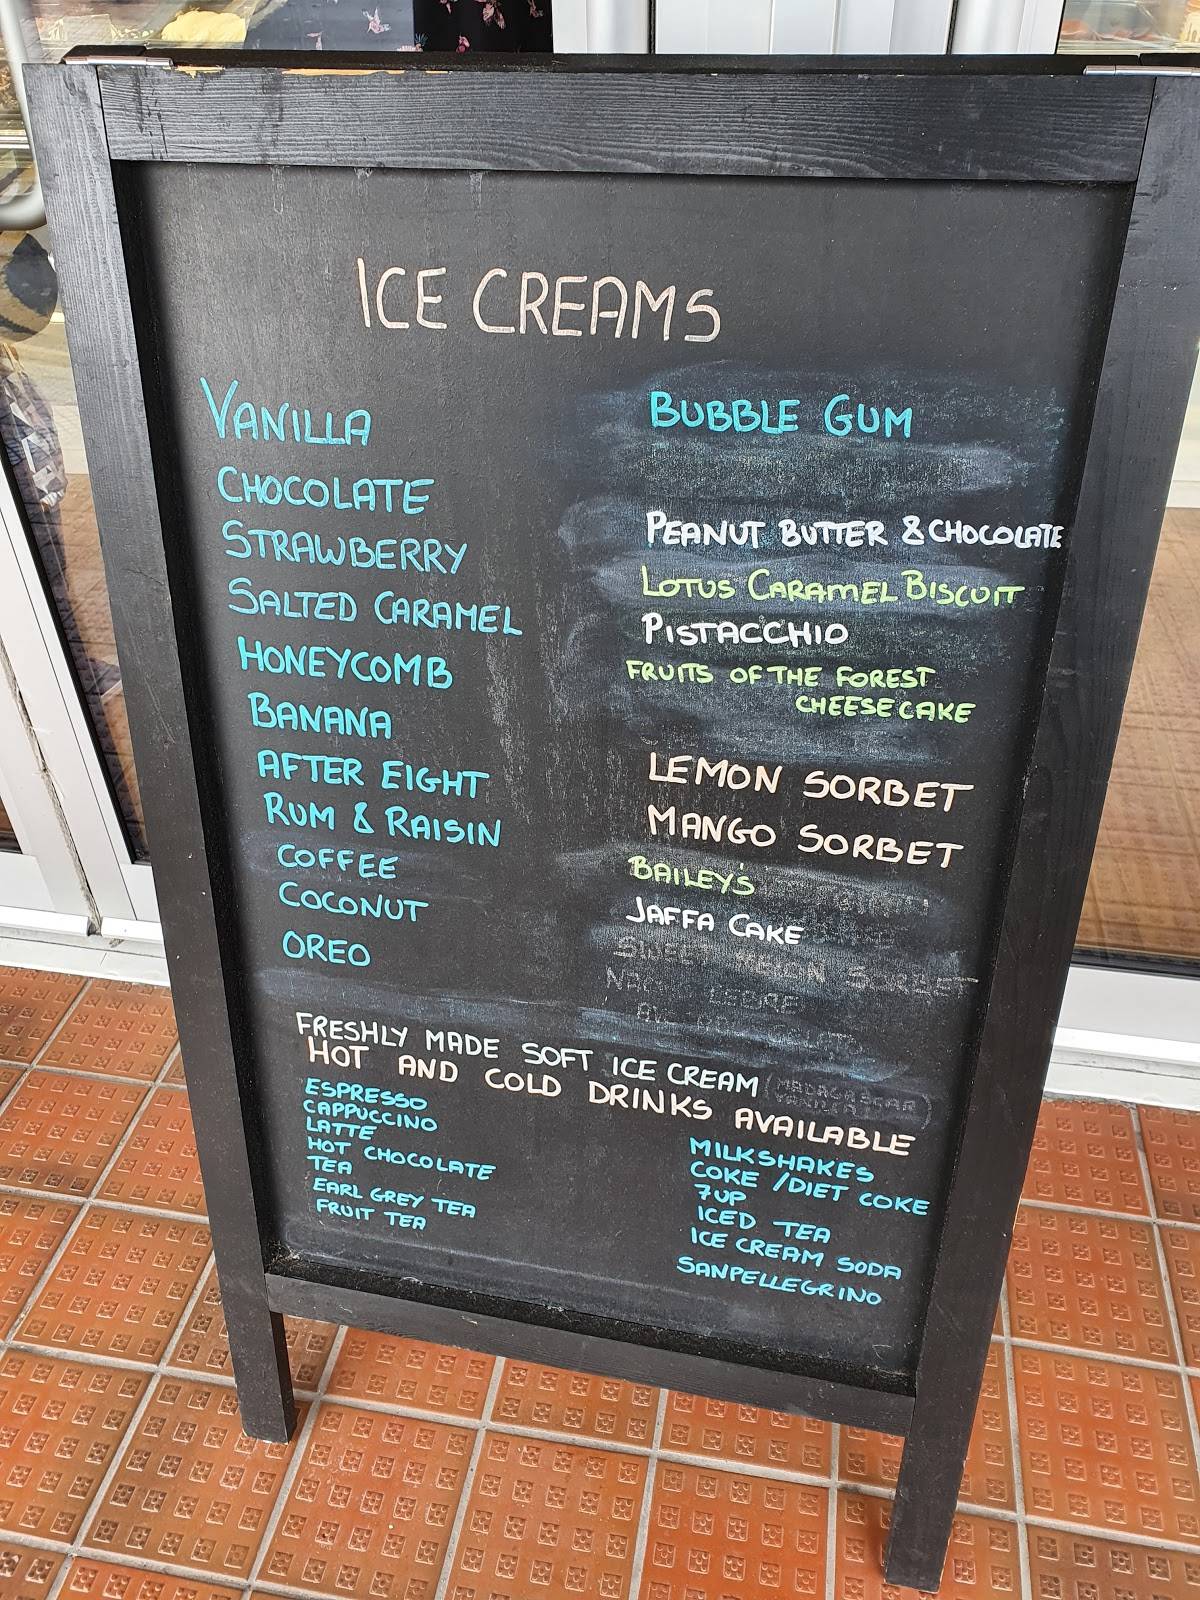 ICE CREAMS
VANILLA
CHOCOLATE
STRAWBERRY
SALTED CARAMEL
HONEYCOMB
BANANA
AFTER EIGHT
RUM & RAISIN
COFFEE
COCONUT
OREO
BUBBLE GUM
PEANUT BUTTER & CHOCOLATE
LOTUS CARAMEL BISCUIT
PISTACCHIO
FRUITS OF THE FOREST
CHEESECAKE
LEMON SORBET
MANGO SORBET
BAILEY'S
JAFFA CAKE
SWEET MELON SORBET
FRESHLY MADE SOFT ICE CREAM (MADAGASCAR
VANILLA)
HOT AND COLD DRINKS AVAILABLE
ESPRESSO
CAPPUCCINO
LATTE
HOT CHOCOLATE
TEA
EARL GREY TEA
FRUIT TEA
MILKSHAKES
COKE / DIET COKE
7UP
ICED TEA
ICE CREAM SODA
SANPELLEGRINO